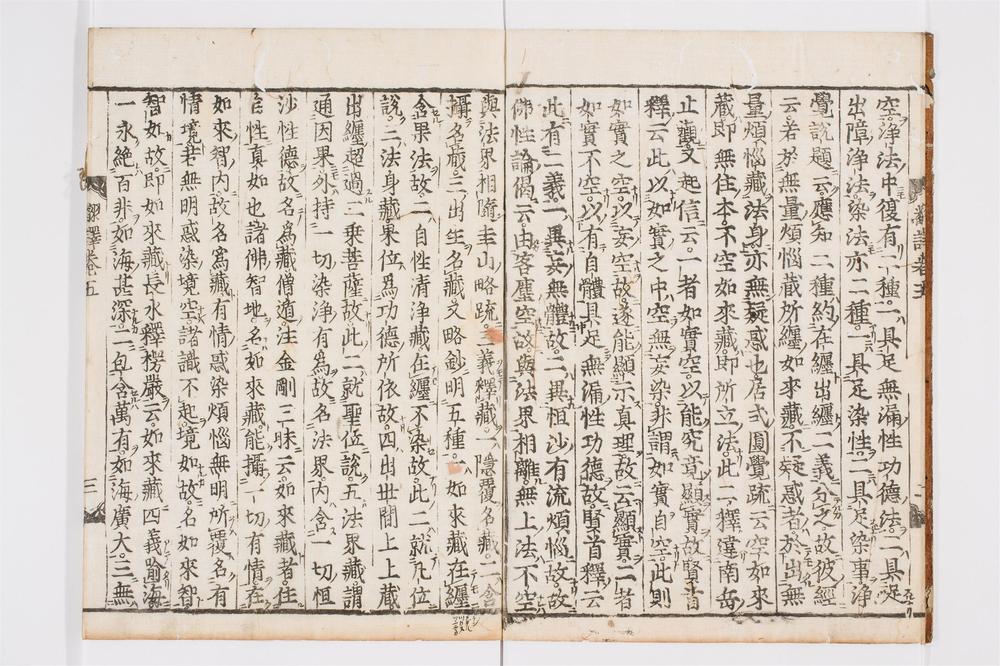 空淨法中復有二種一具足無漏性功德法二具足
出障淨法染法亦二種一具足染性二具足染事淨
覺説題云應知二種約在纏出纏二義分之故彼經
云若於無量煩惱藏所纏如來藏不疑惑者於出無
量煩惱藏法身亦無疑惑也居式圓覺疏云空如來
藏即無住本不空如來藏即所立法此二釋違南岳
止觀又起信云一者如實空以能究竟顯實故賢首
釋云此以如實之中空無妄染非謂如實自空此則
如實之空以妄空故遂能顯示真理故云顯實二者
如實不空以有自體具足無漏性功德故賢首釋云
此有二義一異妄無體故二異恒沙有流煩惱故故
佛性論偈云由客塵空故與法界相離無上法不空
與法界相隨圭山略疏三義釋藏一隱覆名藏二含
攝名藏三出生名藏又略鈔明五種一如來藏在纏
含果法故二自性清淨藏在纏不染故此二就凡位
説三法身藏果位為功德所依故四出世間上上藏
出纏超過二乘菩薩故此二就聖位説五法界藏謂
通因果外持一切染淨有為故名法界内含一切恒
沙性德故名為藏僧遁注金剛三昧云如來藏者住
自性真如也諸佛智地名如來藏能攝一切有情在
如來智内故名為藏有情惑染煩惱無明所覆名有
情境若無明惑染境空諸識不起境如故名如來智
智如故即如來藏長水釋楞嚴云如來藏四義踰海
一永絶百非如海甚深二包含萬有如海廣大三無
釋卷五
三